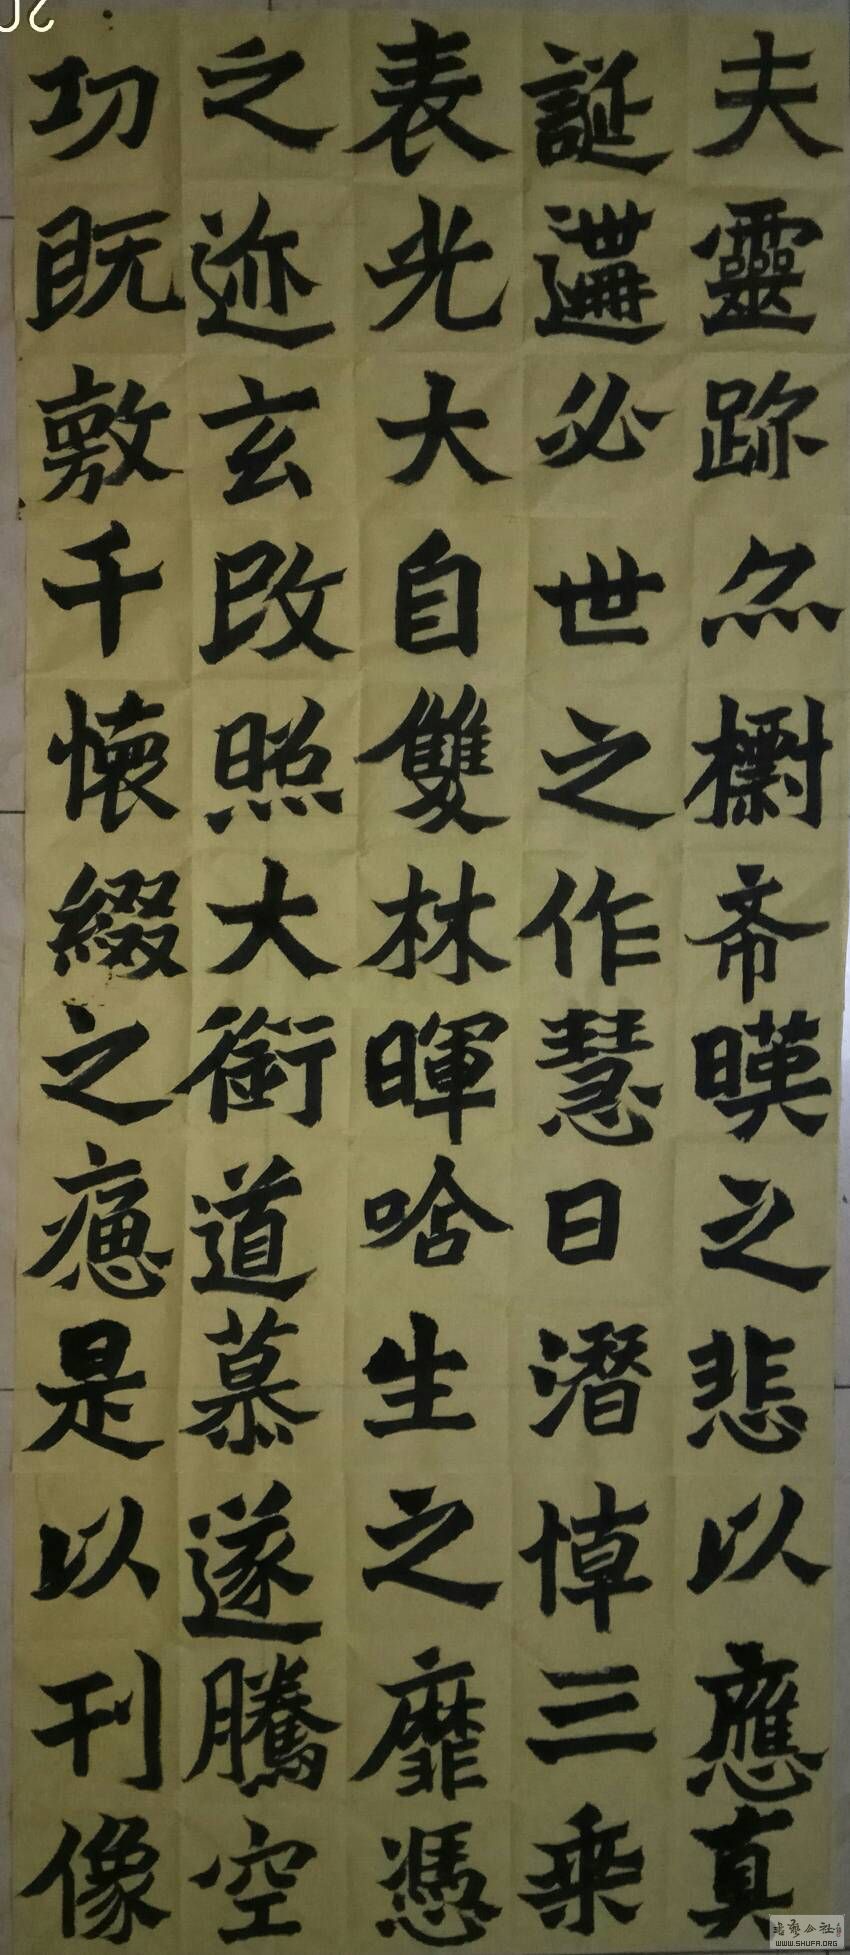 夫靈跡尒檦斋暵之悲以應真
誕遘必世之作慧日潛悼三乘
表光大自雙林暉唅生之靡憑
之迹玄改照大銜道慕遂騰空
功既敷千懷綴之是以刊像
WWW.SHUFA.ORG